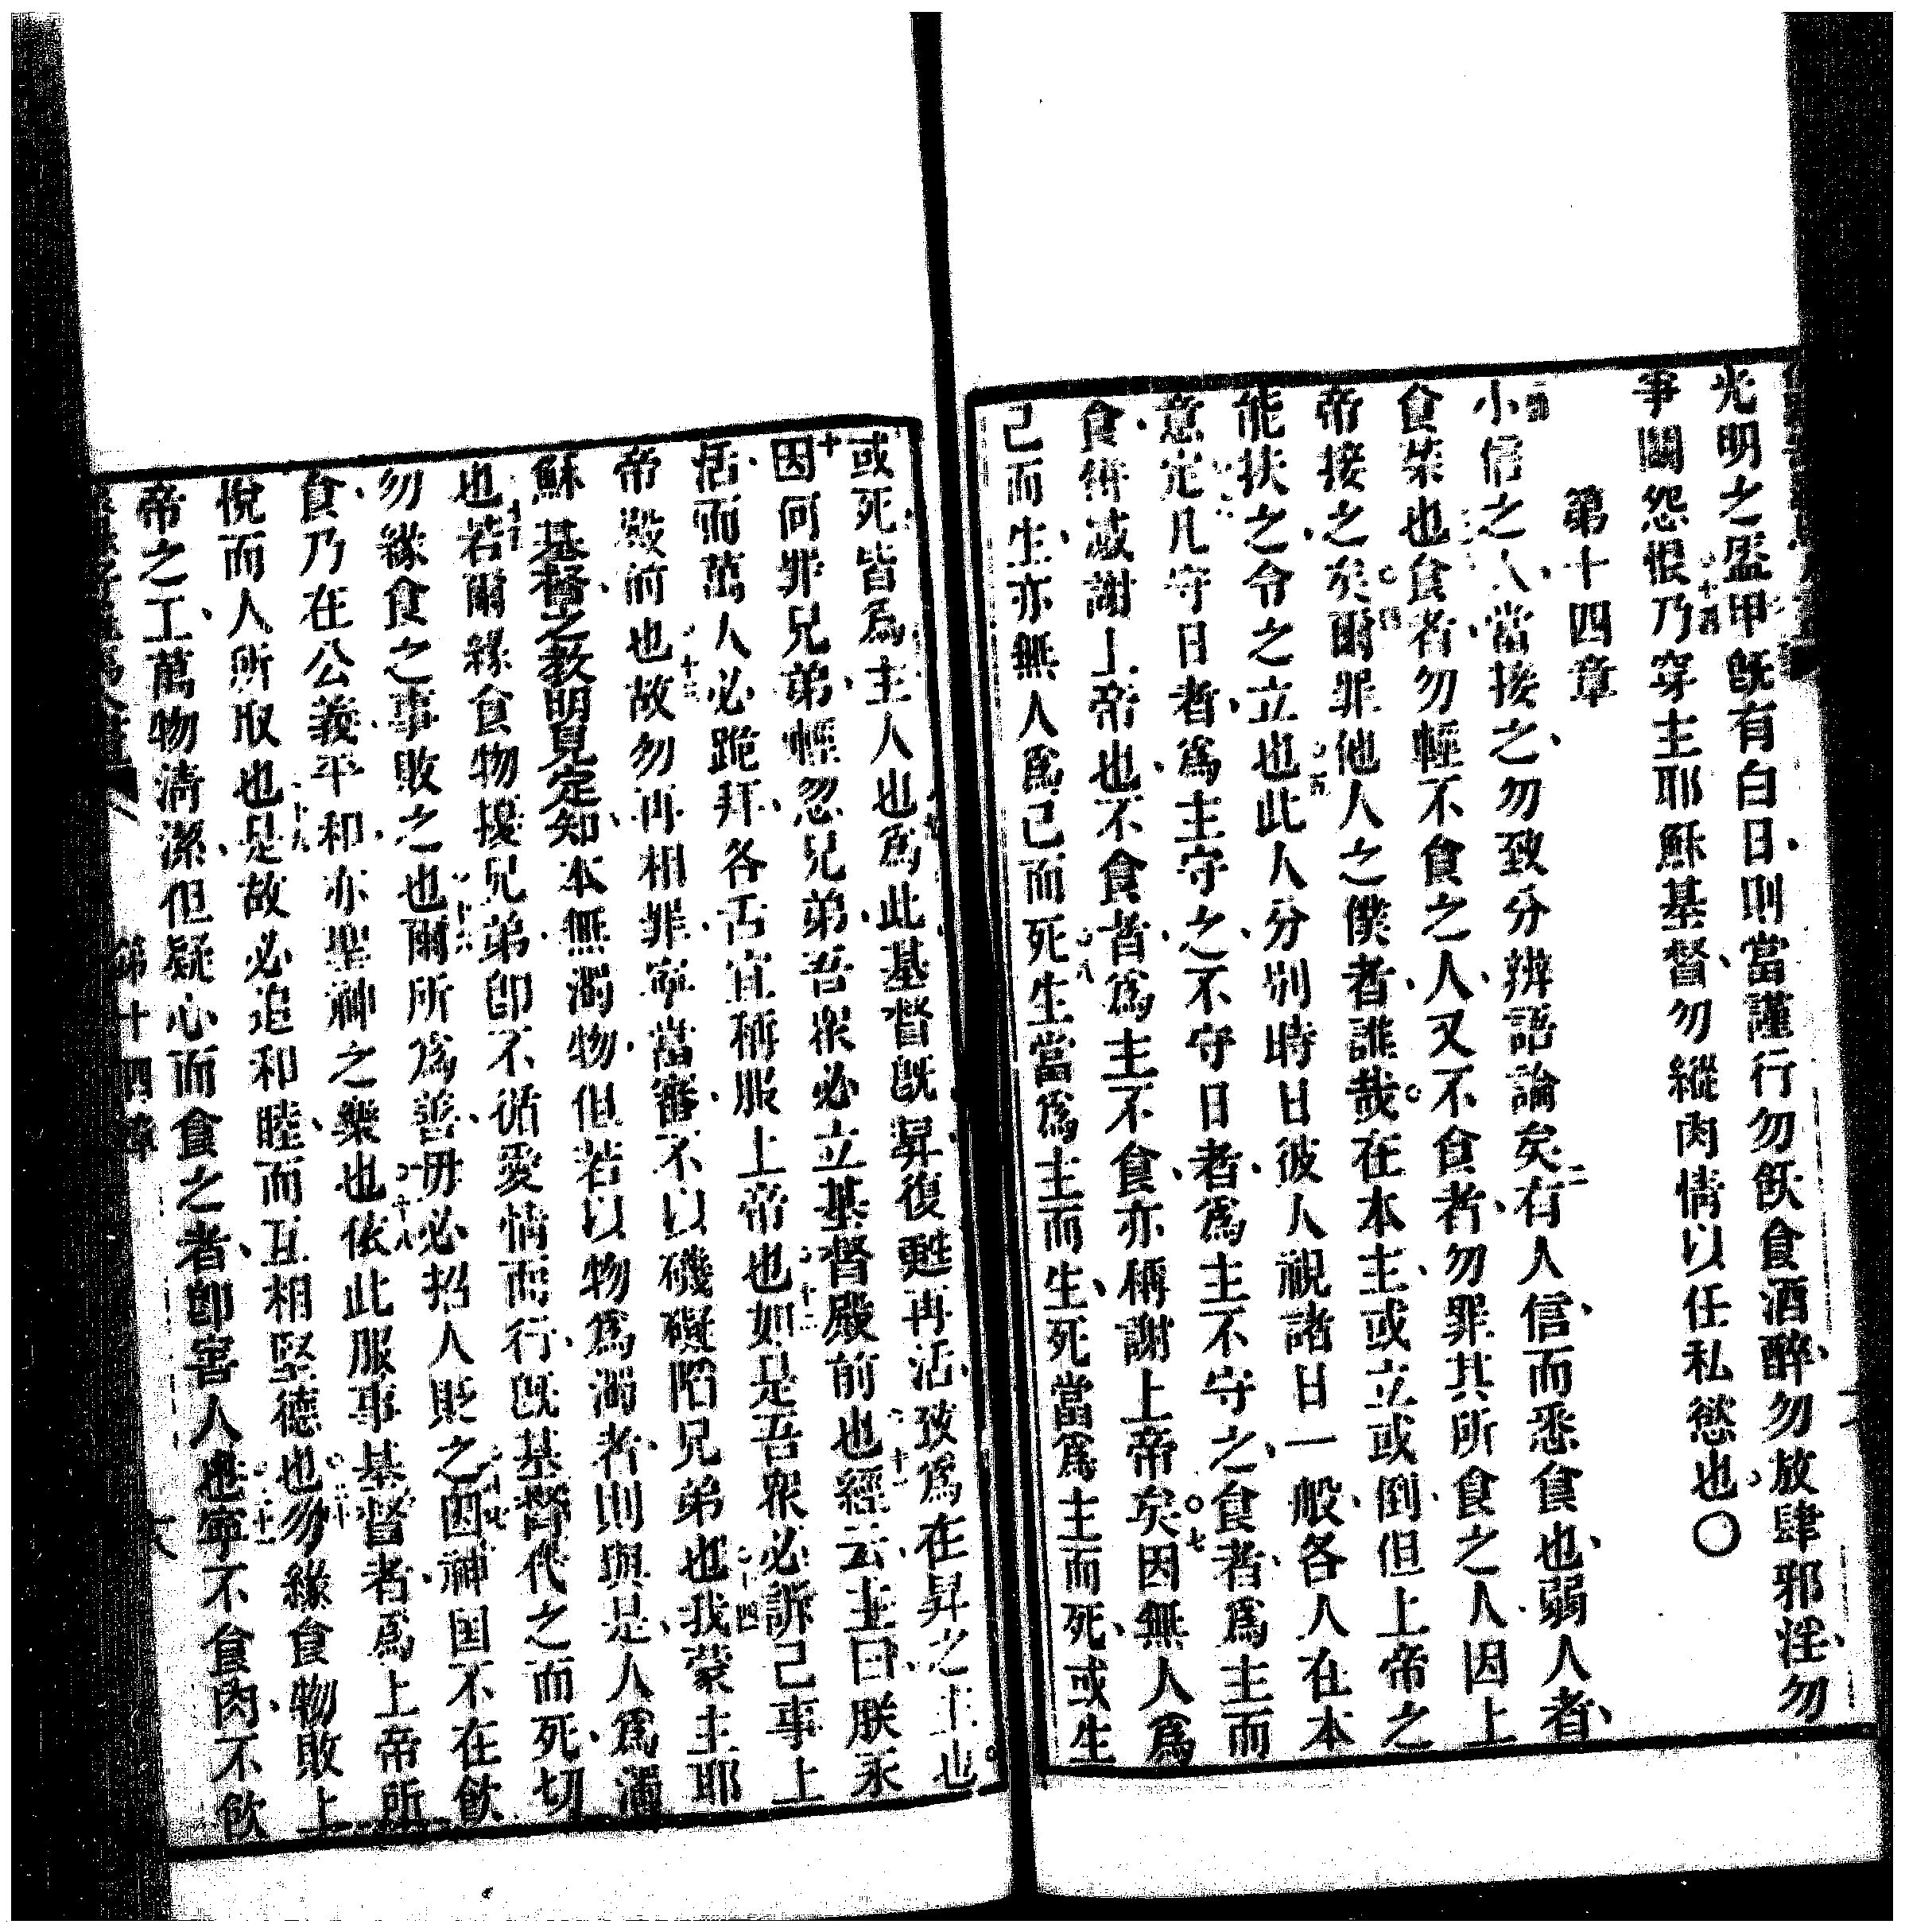 光明之盔甲旣有白日則當謹行勿飲食酒醉勿放肆邪淫勿
事鬬怨恨十四乃穿主耶穌基督勿縱肉情以任私慾也〇
第十四章
小信之人當接之勿致分辨語論矣二有人信而悉食也弱人者
食菜也食者勿輕不食之人又不食者勿罪其所食之人因上
帝接之矣四爾罪他人之僕者誰哉在本主或立或倒但上帝之
能扶之令之立也五此人分別時日彼人視諸日一般各人在本
意定凡守日者爲主守之不守日者爲主不守之食者爲主而
食倂減謝上帝也不食者爲主不食亦稱謝上帝矣七因無人爲
己而生亦無人爲己而死八生當爲主而生死當爲主而死或生
或死皆爲主人也爲此基督旣昇復甦再活致爲在昇之主也
十因何罪兄弟輕忽兄弟吾衆必立基督殿前也十一經云主曰朕永
活而萬人必跪拜各舌宜稱服上帝也十二如是吾衆必訴己事上
帝殿前也十三故勿再相罪寧當審不以礙陷兄弟也十四我蒙主耶
穌基督之教明見定知本無濁物但若以物爲濁者則與是人爲濁
也十五若爾緣食物擾兄弟卽不循愛情而行旣基督代之而死切
勿緣食之事敗之也十六爾所爲善毋必招人貶之十七因神國不在飲
食乃在公義平和亦聖神之樂也十八依此服事基督者爲上帝所
悅而人所取也十九是故必追和睦而互相堅德也二十勿緣食物敗上
帝之工萬物淸潔但疑心而食之者卽害人也二十一寧不食肉不飲
第十四章